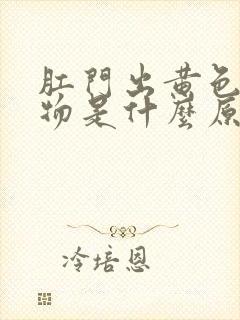 肛門出黃色
物是什麼原
冷培恩